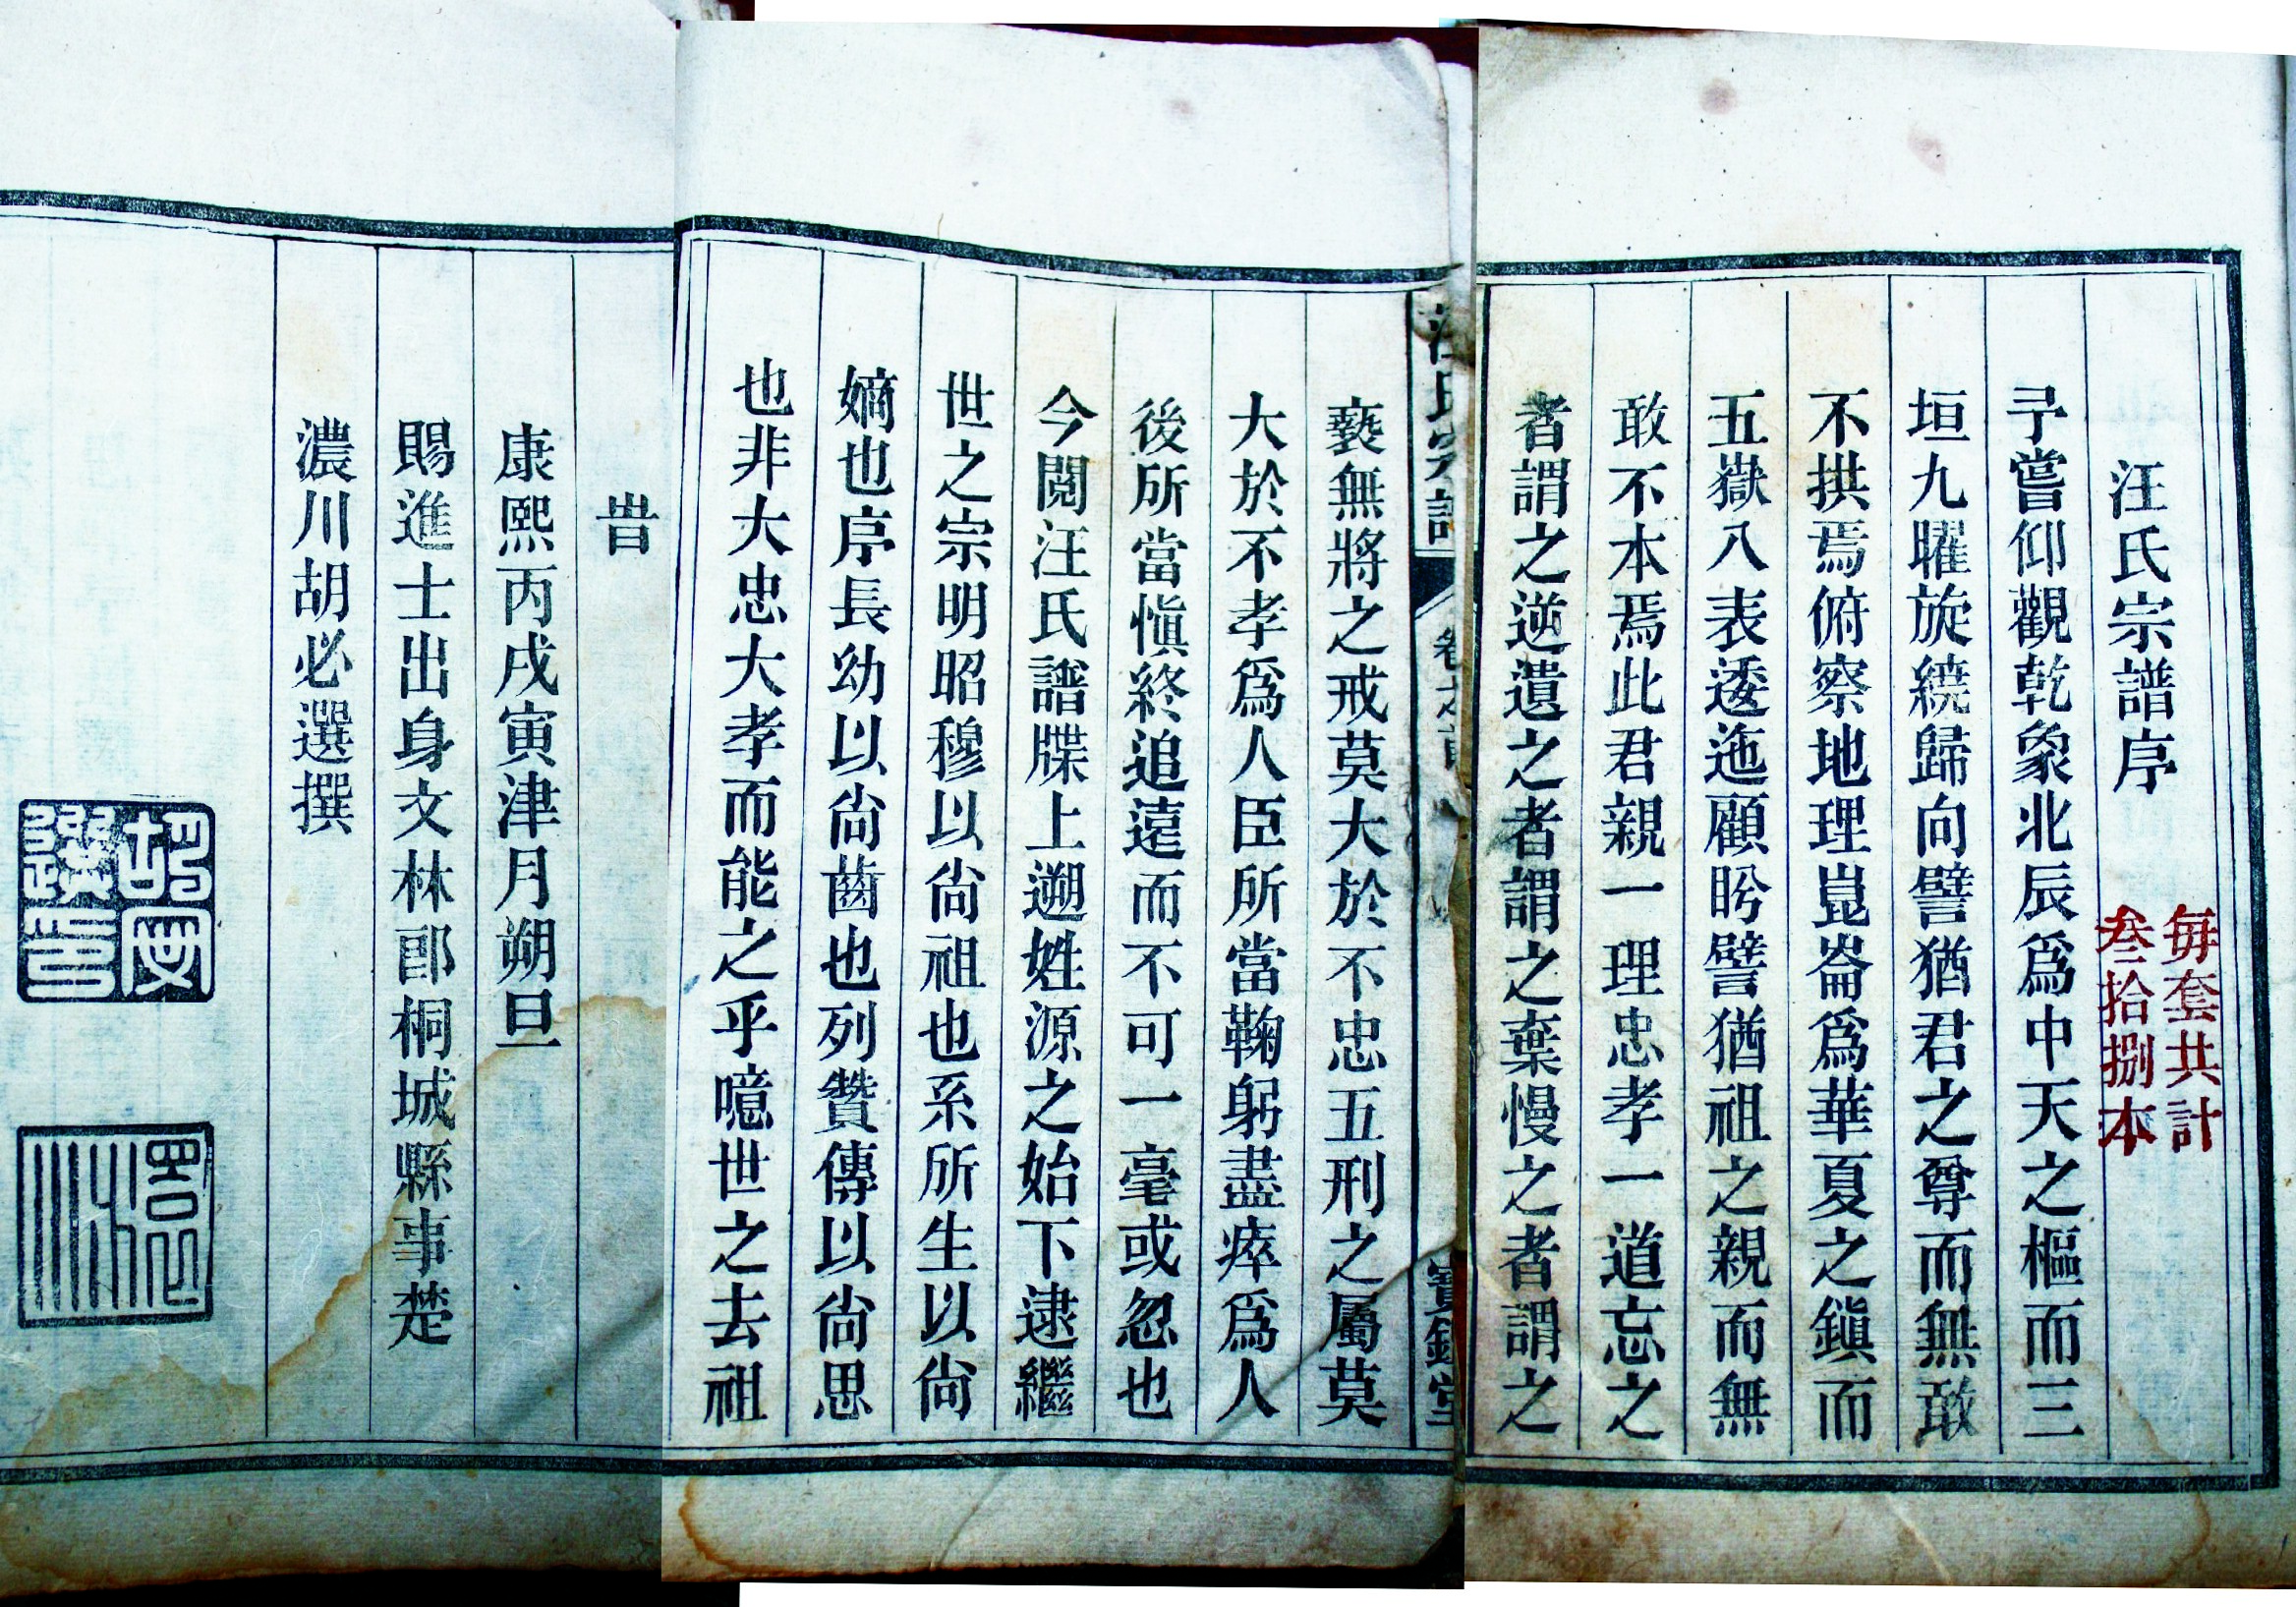 汪氏宗譜序
每套共計
叄拾捌本
予嘗仰觀乾象北辰爲中天之樞而三
垣九曜旋繞歸向譬猶君之尊而無敢
不拱焉俯察地理崑崙爲華夏之鎭而
五嶽八表逶迤顧盻譬猶祖之親而無
敢不本焉此君親一理忠孝一道忘之
者謂之逆遺之者謂之棄慢之者謂之
汪氏宗譜
卷之首
寶鎮堂
褻無將之戒莫大於不忠五刑之屬莫
大於不孝爲人臣所當鞠躬盡瘁爲人
後所當愼終追遠而不可一毫或忽也
今閱汪氏譜牒上遡姓源之始下逮繼
世之宗明昭穆以尙祖也系所生以尙
嫡也序長幼以尙齒也列贊傳以尙思
也非大忠大孝而能之乎噫世之去祖
旹
康熙丙戌寅津月朔旦
賜進士出身文林郎桐城縣事楚
濃川胡必選撰
胡必選印